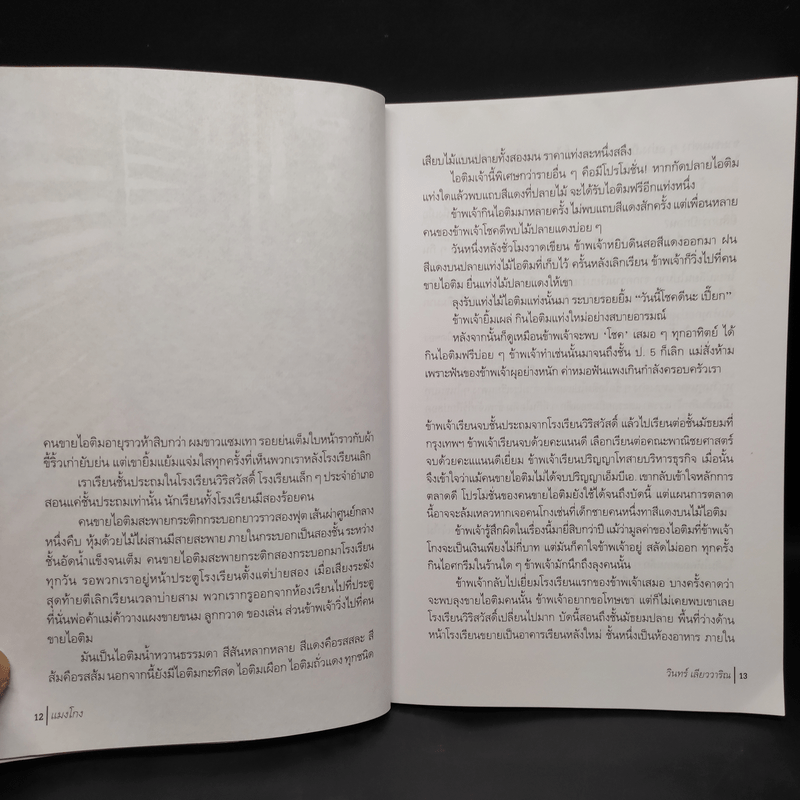 คนขายไอติมอายุราวห้าสิบกว่า ผมขาวแซมเทา รอยย่นเต็มใบหน้าราวกับผ้า
ขี้ริ้วเก่ายับย่น แต่เขายิ้มแย้มแจ่มใสทุกครั้งที่เห็นพวกเราหลังโรงเรียนเลิก
เราเรียนชั้นประถมในโรงเรียนวิริสวัสดิ์ โรงเรียนเล็ก ๆ ประจำอำเภอ
สอนแค่ชั้นประถมเท่านั้น นักเรียนทั้งโรงเรียนมีสองร้อยคน
คนขายไอติมสะพายกระติกกระบอกยาวราวสองฟุต เส้นผ่าศูนย์กลาง
หนึ่งคืบ หุ้มด้วยไม้ไผ่สานมีสายสะพาย ภายในกระบอกเป็นสองชั้น ระหว่าง
ชั้นอัดน้ำแข็งจนเต็ม คนขายไอติมสะพายกระติกสองกระบอกมาโรงเรียน
ทุกวัน รอพวกเราอยู่หน้าประตูโรงเรียนตั้งแต่บ่ายสอง เมื่อเสียงระฆัง
สุดท้ายตีเลิกเรียนเวลาบ่ายสาม พวกเรากรูออกจากห้องเรียนไปที่ประตู
ที่นั่นพ่อค้าแม่ค้าวางแผงขายขนม ลูกกวาด ของเล่น ส่วนข้าพเจ้าวิ่งไปที่คน
ขายไอติม
มันเป็นไอติมน้ำหวานธรรมดา สีสันหลากหลาย สีแดงคือรสสละ สี
ส้มคือรสส้ม นอกจากนี้ยังมีไอติมกะทิสด ไอติมเผือก ไอติมถั่วแดง ทุกชนิด
12 แมงโกง
เสียบไม้แบนปลายทั้งสองมน ราคาแท่งละหนึ่งสลึง
ไอติมเจ้านี้พิเศษกว่ารายอื่น ๆ คือมีโปรโมชั่น! หากกัดปลายไอติม
แท่งใดแล้วพบแถบสีแดงที่ปลายไม้ จะได้รับไอติมฟรีอีกแท่งหนึ่ง
ข้าพเจ้ากินไอติมมาหลายครั้ง ไม่พบแถบสีแดงสักครั้ง แต่เพื่อนหลาย
คนของข้าพเจ้าโชคดีพบไม้ปลายแดงบ่อย ๆ
วันหนึ่งหลังชั่วโมงวาดเขียน ข้าพเจ้าหยิบดินสอสีแดงออกมา ฝน
สีแดงบนปลายแท่งไม้ไอติมที่เก็บไว้ ครั้นหลังเลิกเรียน ข้าพเจ้าก็วิ่งไปที่คน
ขายไอติม ยื่นแท่งไม้ปลายแดงให้เขา
ลุงรับแท่งไม้ไอติมแท่งนั้นมา ระบายรอยยิ้ม “วันนี้โชคดีนะ เปี๊ยก”
ข้าพเจ้ายิ้มเผล่ กินไอติมแท่งใหม่อย่างสบายอารมณ์
หลังจากนั้นก็ดูเหมือนข้าพเจ้าจะพบ ‘โชค’ เสมอ ๆ ทุกอาทิตย์ ได้
กินไอติมฟรีบ่อย ๆ ข้าพเจ้าทำเช่นนั้นมาจนถึงชั้น ป. 5 ก็เลิก แม่สั่งห้าม
เพราะฟันของข้าพเจ้าผุอย่างหนัก ค่าหมอฟันแพงเกินกำลังครอบครัวเรา
ข้าพเจ้าเรียนจบชั้นประถมจากโรงเรียนวิริสวัสดิ์ แล้วไปเรียนต่อชั้นมัธยมที่
กรุงเทพฯ ข้าพเจ้าเรียนจบด้วยคะแนนดี เลือกเรียนต่อคณะพาณิชยศาสตร์
จบด้วยคะแนนดีเยี่ยม ข้าพเจ้าเรียนปริญญาโทสายบริหารธุรกิจ เมื่อนั้น
จึงเข้าใจว่าแม้คนขายไอติมไม่ได้จบปริญญาเอ็มบีเอ. เขากลับเข้าใจหลักการ
ตลาดดี โปรโมชั่นของคนขายไอติมยังใช้ได้จนถึงบัดนี้ แต่แผนการตลาด
นี้อาจจะล้มเหลวหากเจอคนโกงเช่นที่เด็กชายคนหนึ่งทาสีแดงบนไม้ไอติม
ข้าพเจ้ารู้สึกผิดในเรื่องนี้มายี่สิบกว่าปี แม้ว่ามูลค่าของไอติมที่ข้าพเจ้า
โกงจะเป็นเงินเพียงไม่กี่บาท แต่มันก็คาใจข้าพเจ้าอยู่ สลัดไม่ออก ทุกครั้ง
กินไอศกรีมในร้านใด ๆ ข้าพเจ้ามักนึกถึงลุงคนนั้น
ข้าพเจ้ากลับไปเยี่ยมโรงเรียนแรกของข้าพเจ้าเสมอ บางครั้งคาดว่า
จะพบลุงขายไอติมคนนั้น ข้าพเจ้าอยากขอโทษเขา แต่ก็ไม่เคยพบเขาเลย
โรงเรียนวิริสวัสดิ์เปลี่ยนไปมาก บัดนี้สอนถึงชั้นมัธยมปลาย พื้นที่ว่างด้าน
หน้าโรงเรียนขยายเป็นอาคารเรียนหลังใหม่ ชั้นหนึ่งเป็นห้องอาหาร ภายใน
วินทร์ เลียววาริณ 13